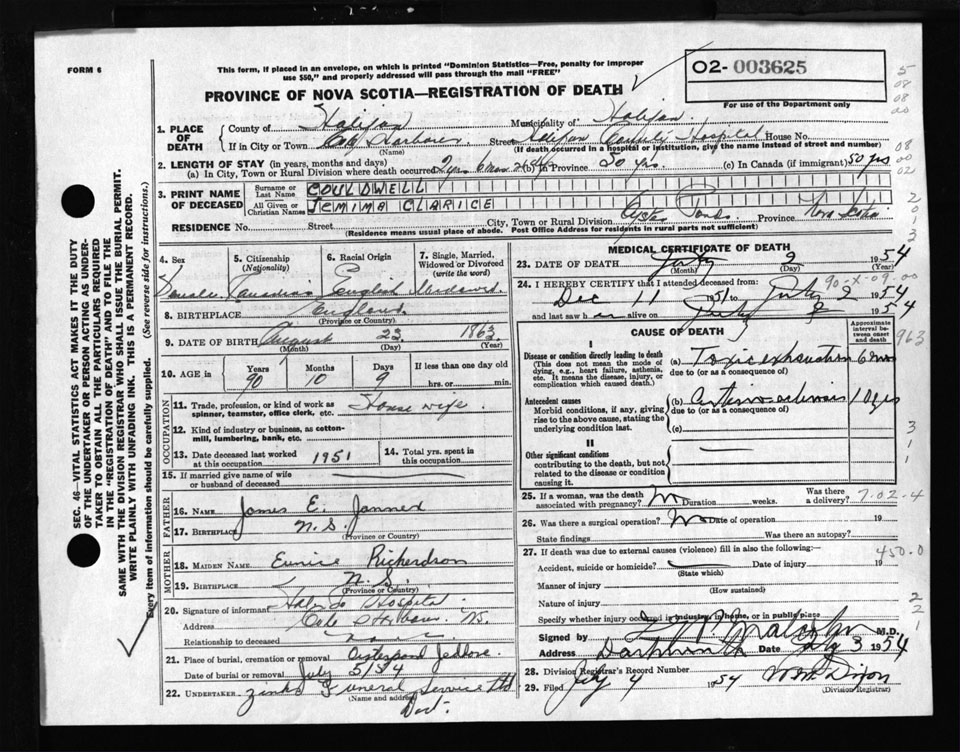 FORM 6
This form, if placed in an envelope, on which is printed "Dominion Statistics—Free, penalty for improper
use $50," and properly addressed will pass through the mail "FREE"
02- 003625
For use of the Department only
PROVINCE OF NOVA SCOTIA—REGISTRATION OF DEATH
SEC. 46—VITAL STATISTICS ACT MAKES IT THE DUTY
OF THE UNDERTAKER OR PERSON ACTING AS UNDER-
TAKER TO OBTAIN ALL THE PARTICULARS REQUIRED
IN THE "REGISTRATION OF DEATH" AND TO FILE THE
SAME WITH THE DIVISION REGISTRAR WHO SHALL ISSUE THE BURIAL PERMIT.
WRITE PLAINLY WITH UNFADING INK. THIS IS A PERMANENT RECORD.
Every item of information should be carefully supplied. (See reverse side for instructions.)
1. PLACE OF DEATH
County of Halifax Municipality of Halifax
If in City or Town Cole Harbour Street Halifax County Hospital House No.
(Name) (If death occurred in a hospital or institution, give the name instead of street and number)
2. LENGTH OF STAY (in years, months and days)
(a) In City, Town or Rural Division where death occurred 2 yrs 6 mos (b) In Province 50 yrs. (c) In Canada (if immigrant) 50 yrs
3. PRINT NAME OF DECEASED
Surname or Last Name COULDWELL
All Given or Christian Names JEMIMA CLARICE
RESIDENCE No. Street City, Town or Rural Division Oyster Ponds Province Nova Scotia
(Residence means usual place of abode. Post Office Address for residents in rural parts not sufficient)
4. Sex Female
5. Citizenship (Nationality) Canadian
6. Racial Origin English
7. Single, Married, Widowed or Divorced (write the word) Widowed
8. BIRTHPLACE England
(Province or Country)
9. DATE OF BIRTH August 23 1863
(Month) (Day) (Year)
10. AGE in Years 90 Months 10 Days 9 If less than one day old
hrs. or min.
OCCUPATION
11. Trade, profession, or kind of work as spinner, teamster, office clerk, etc. House wife
12. Kind of industry or business, as cotton-mill, lumbering, bank, etc.
13. Date deceased last worked at this occupation 1951
14. Total yrs. spent in this occupation
15. If married give name of wife or husband of deceased
FATHER
16. Name James E. Jenned
17. Birthplace N.S.
(Province or Country)
MOTHER
18. MAIDEN NAME Eunice Richerdson
19. BIRTHPLACE N.S.
(Province or Country)
20. Signature of informant Hospital
Address Cole Harbour NS.
Relationship to deceased none
21. Place of burial, cremation or removal Oysterpond Jeddore
Date of burial or removal July 5/54
22. UNDERTAKER Zinks Funeral Service Ltd
(Name and address) Dart.
MEDICAL CERTIFICATE OF DEATH
23. DATE OF DEATH July 2 1954
(Month) (Day) (Year)
24. I HEREBY CERTIFY that I attended deceased from:
90-X-09-00
Dec 11 1951 to July 2 1954
and last saw h alive on July 2 1954
CAUSE OF DEATH
Approximate interval between onset and death
I
Disease or condition directly leading to death
(This does not mean the mode of dying, e.g. heart failure, asthenia, etc. It means the disease, injury, or complication which caused death.)
(a) Toxic exhaustion 6 mos
due to (or as a consequence of)
Antecedent causes
Morbid conditions, if any, giving rise to the above cause, stating the underlying condition last.
(b) Arteriosclerosis 10 yrs
due to (or as a consequence of)
(c)
II
Other significant conditions
contributing to the death, but not related to the disease or condition causing it.
25. If a woman, was the death associated with pregnancy? No Duration weeks. Was there a delivery?
7.02.4
26. Was there a surgical operation? No Date of operation 19
State findings Was there an autopsy?
27. If death was due to external causes (violence) fill in also the following:—
450.0
Accident, suicide or homicide? Date of injury 19
(State which)
Manner of injury
(How sustained)
Nature of injury
Specify whether injury occurred in industry, in home, or in public place
Signed by P Malcolm M.D.
Dartmouth Date July 3 1954
28. Division Registrar's Record Number
29. Filed July 4 1954 Wm Dixon
(Division Registrar)